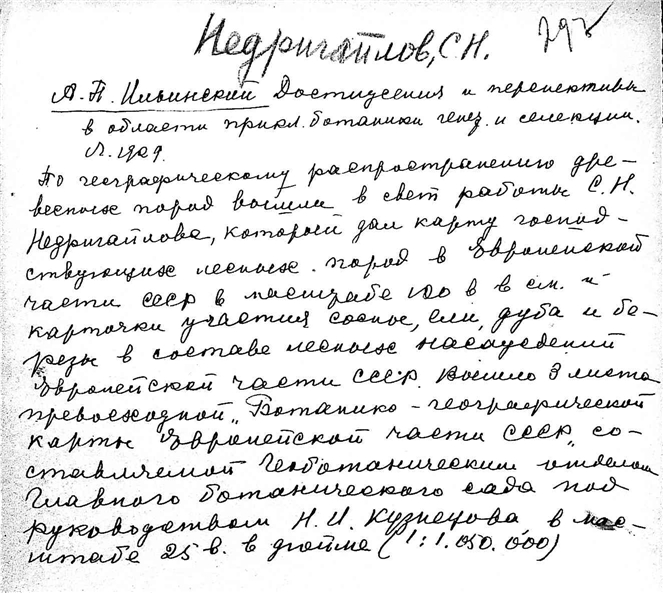 Недригайлов, С.Н.
А.П. Ильинский Достижения и перспективы
в области прикл. ботаники генет. и селекции.
Л. 1929.
По географическому распространению дре-
весных пород вышли в свет работы С.Н.
Недригайлова, который дал карту господ-
ствующих лесных пород в Европейской
части СССР в масштабе 100 в в см. и
карточки участия сосны, ели, дуба и бе-
резы в составе лесных насаждений
Европейской части СССР. Вышло 3 листа
превосходной „Ботанико-географической
карты Европейской части СССР", со-
ставляемой Геоботаническим отделом
Главного ботанического сада под
руководством Н.И. Кузнецова в мас-
штабе 25 в. в дюйме (1:1.050.000)